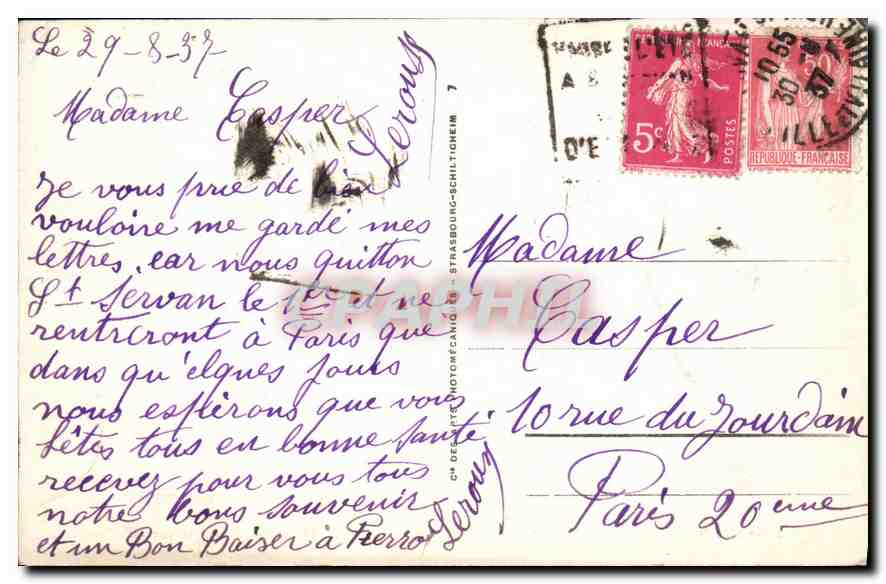 Le 29-8-37
Madame Casper
Je vous prie de bien
vouloire me gardé mes
lettres, car nous quitton
St Servan le 1er et ne
rentreront à Paris que
dans qu'elques jours
nous espérons que vous
êtes tous en bonne santé
recevez pour vous tous
notre bons souvenir
et un Bon Baiser à Pierro
Leroux
Leroux
Cie DES ARTS PHOTOMÉCANIQUES - STRASBOURG-SCHILTIGHEIM 7
Madame
Casper
10 rue du Jourdain
Paris 20eme
A
D'E
5c
POSTES
50
RÉPUBLIQUE-FRANÇAISE
10 55
30
37
ILLE-ET-VILAINE